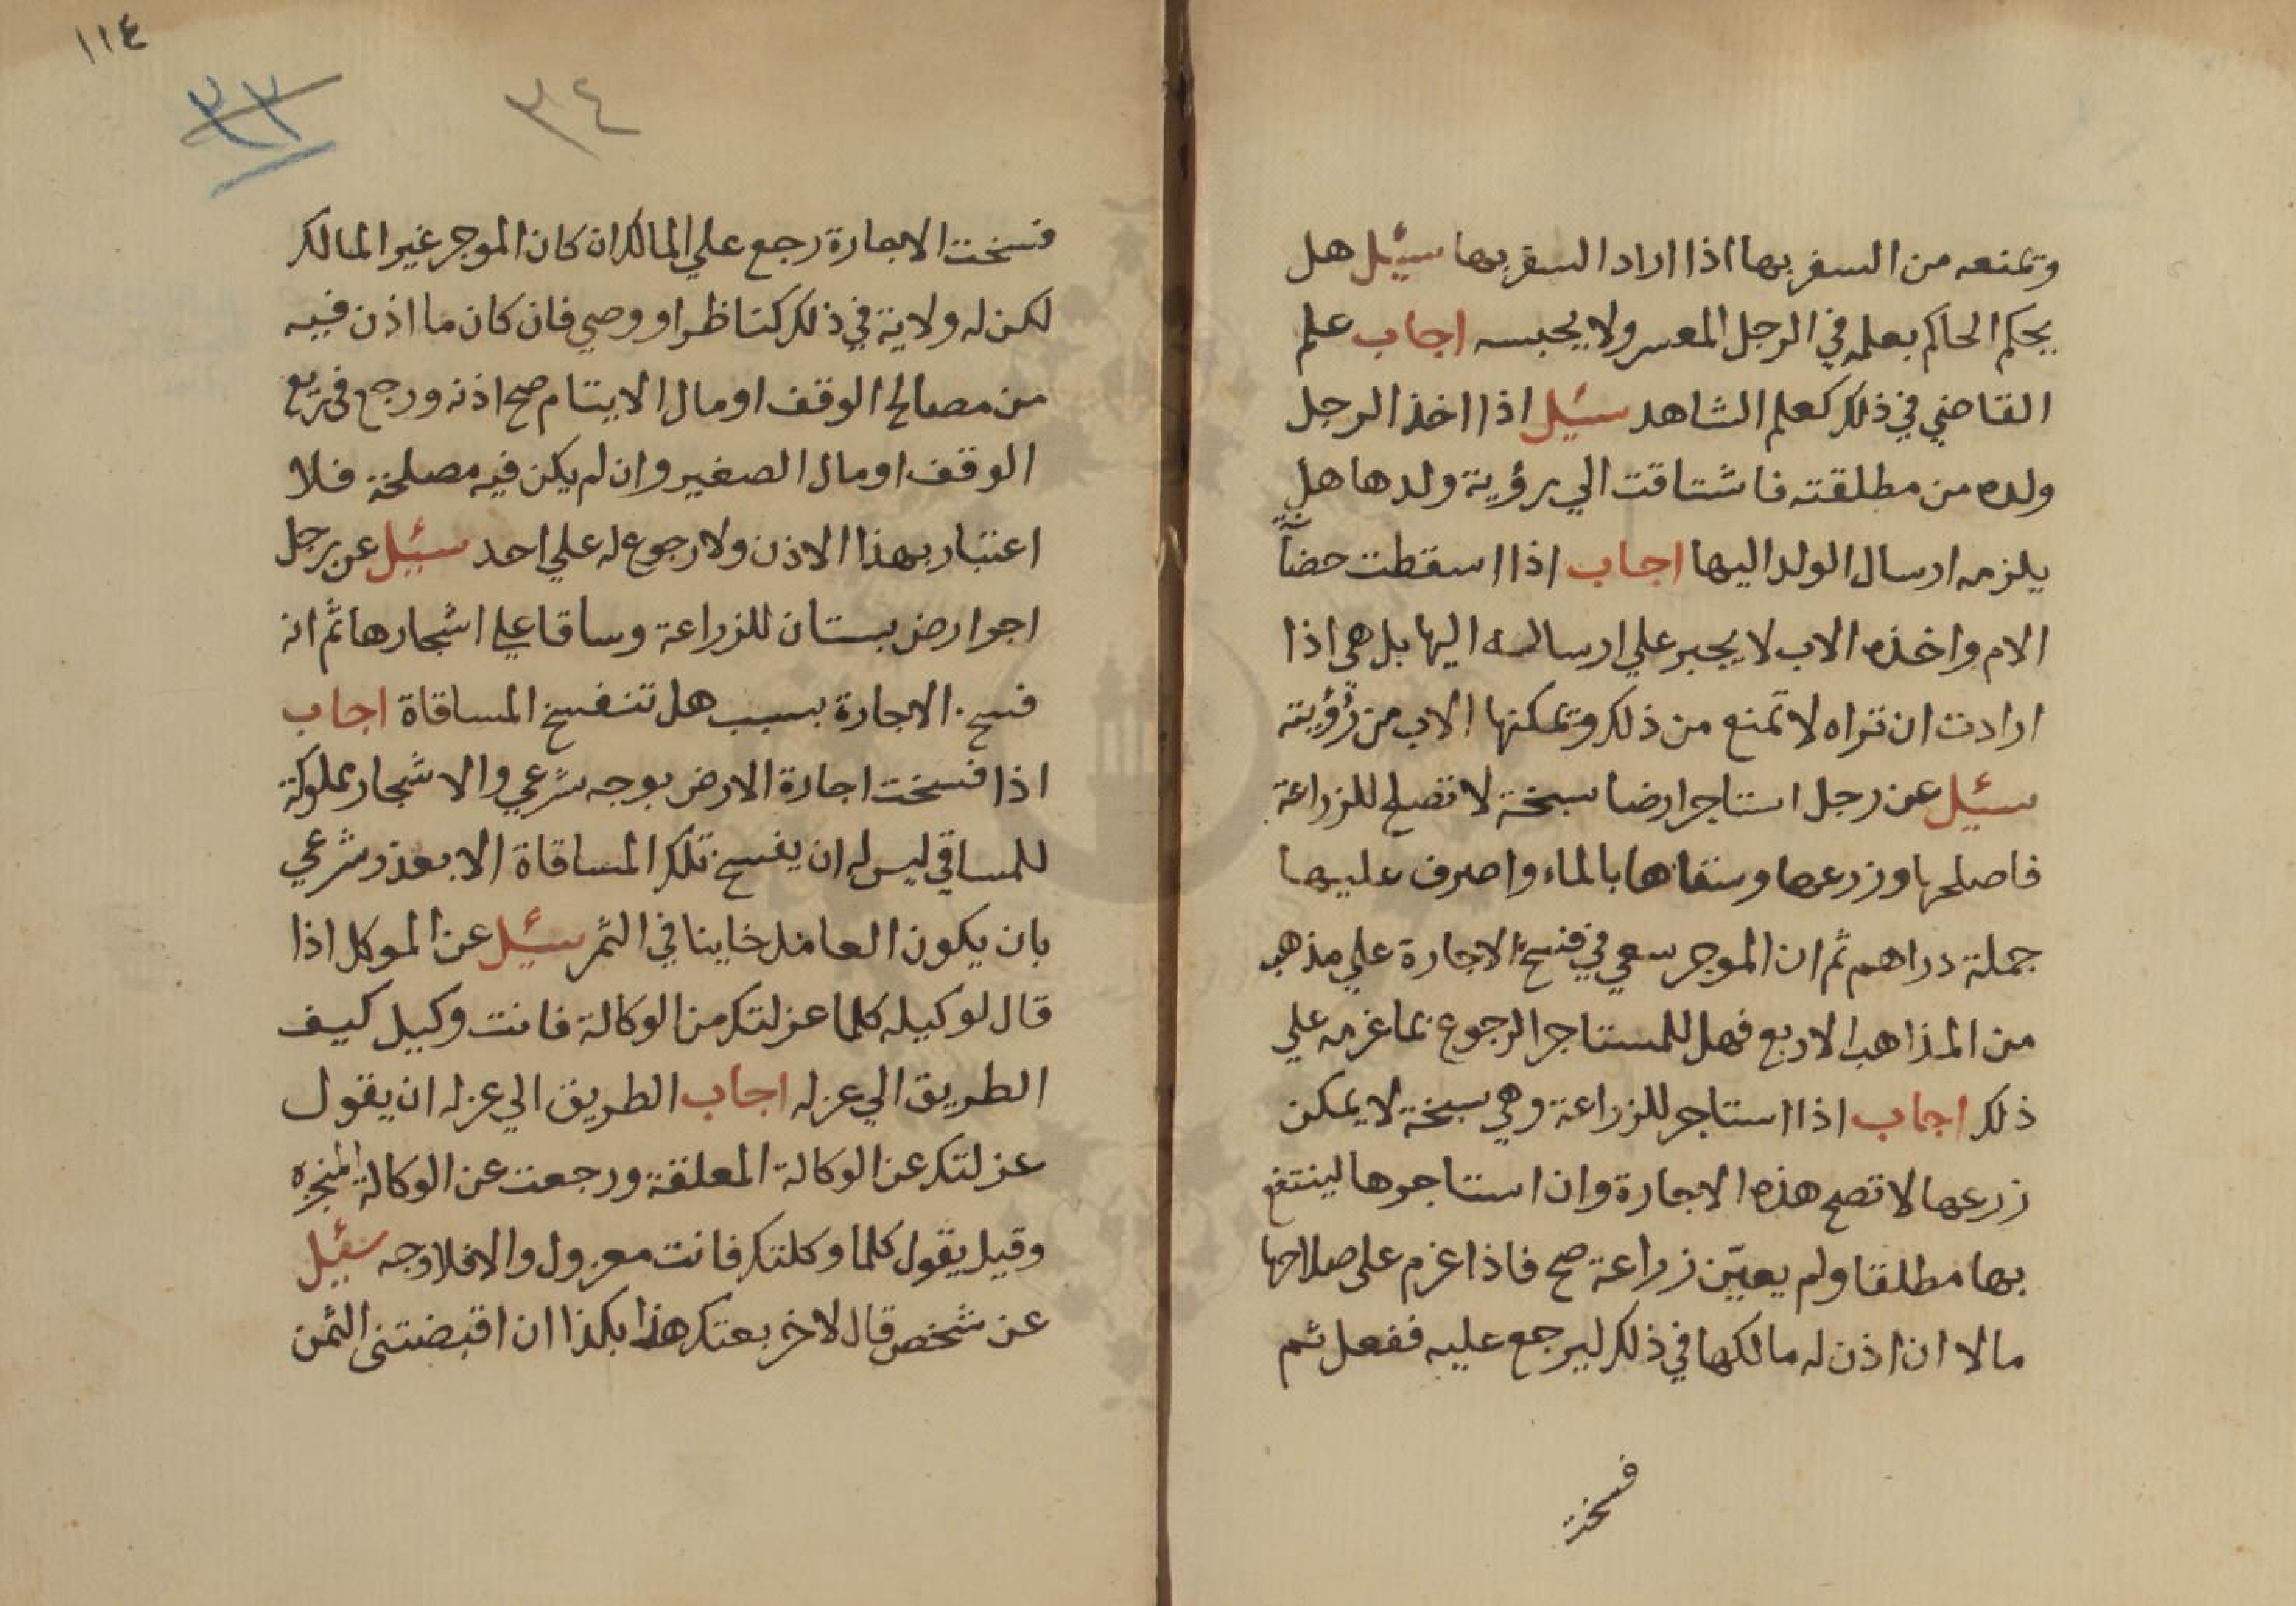 وتمنعه من السفر بها اذا اراد السفر بها سئيل هل
يحكم الحاكم بعلمه في الرجل المعسر ولا يحبسه اجاب علم
القاضي في ذلك كعلم الشاهد سئيل اذا اخذ الرجل
ولده من مطلقته فاشتاقت الي رؤية ولدها هل
يلزمه ارسال الولد اليها اجاب اذا اسقطت حضانة
الام واخذه الاب لا يجبر علي ارساله اليها بل هي اذا
ارادت ان تراه لا تمنع من ذلك وتمكنها الاب من رؤيته
سئيل عن رجل استاجر ارضا سبخة لا تصلح للزراعة
فاصلحها وزرعها وسقاها بالماء واصرف عليها
جملة دراهم ثم ان الموجر سعي في فسخ الاجارة علي مذهب
من المذاهب الاربع فهل للمستاجر الرجوع بما غرمه علي
ذلك اجاب اذا استاجر للزراعة وهي سبخة لا يمكن
زرعها لا تصح هذه الاجارة وان استاجرها لينتفع
بها مطلقا ولم يعيّن زراعة صح فاذا غرم على صلاحها
مالا ان اذن له مالكها في ذلك ليرجع عليه ففعل ثم
فسخت
١١٤
٣٣
٣٤
فسخت الاجارة رجع علي المالك ان كان الموجر غير المالك
لكن له ولاية في ذلك كناظر او وصي فان كان ما اذن فيه
من مصالح الوقف او مال الايتام صح اذنه ورجع في ريع
الوقف او مال الصغير وان لم يكن فيه مصلحة فلا
اعتبار بهذا الاذن ولا رجوع له علي احد سئيل عن رجل
اجر ارض بستان للزراعة وساقا علي اشجارها ثم انه
فسخ الاجارة بسبب هل تنفسخ المساقاة اجاب
اذا فسخت اجارة الارض بوجه شرعي والاشجار مملوكة
للمساقي ليس له ان يفسخ تلك المساقاة الا بعذر شرعي
بان يكون العامل خاينا في الثمر سئيل عن الموكل اذا
قال لوكيله كلما عزلتك من الوكالة فانت وكيل كيف
الطريق الي عزله اجاب الطريق الي عزله ان يقول
عزلتك عن الوكالة المعلقة ورجعت عن الوكالة المنجزه
وقيل يقول كلما وكلتك فانت معزول والا فلا وجه سئيل
عن شخص قال لاخر بعتك هذا بكذا ان اقبضتنى الثمن